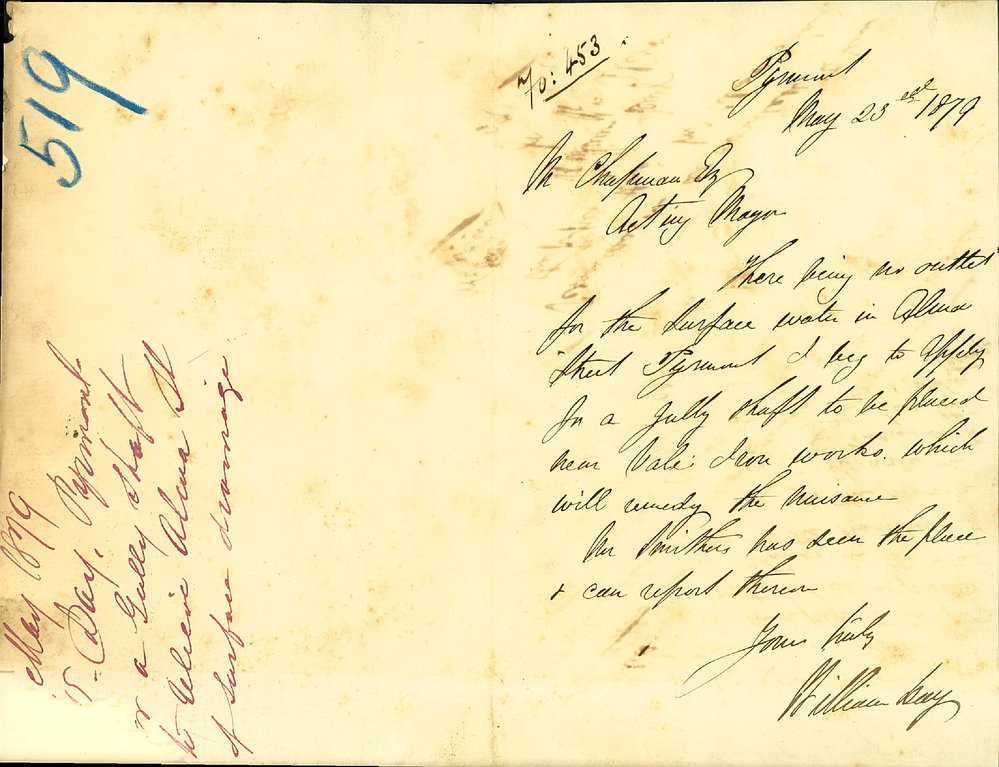 519
Fo: 453
Pyrmont
May 23rd 1879
M Chapman Esq
Acting Mayor
There being no outlet
for the surface water in Alma
Street Pyrmont I beg to apply
for a gully shaft to be placed
near Vale Iron works. which
will remedy the nuisance
Mr Smithers has seen the place
& can report thereon
Yours truly
William Day
May 1879
Day. Pyrmont.
a Gully Shaft
to relieve Alma St
of surface drainage